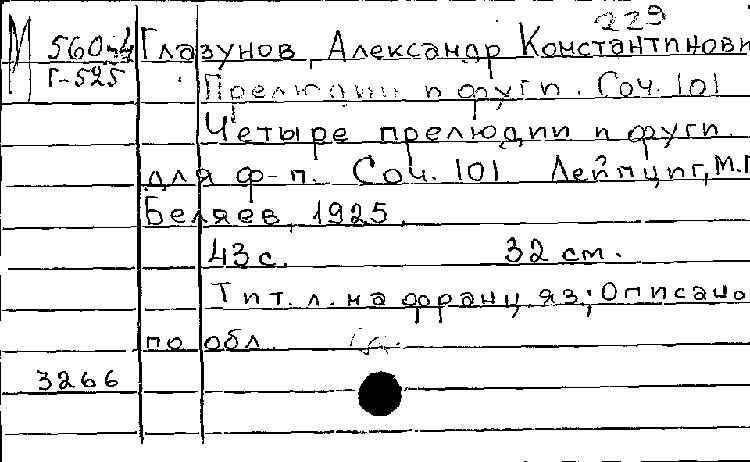 229
М 560-4 Глазунов, Александр Константинови
Г-525 Прелюдии и фуги. Соч. 101
Четыре прелюдии и фуги.
для ф-п. Соч. 101 Лейпциг, М.П
Беляев, 1925.
43 с. 32 см.
Тит. л. на франц. яз; Описано
по обл.
3266